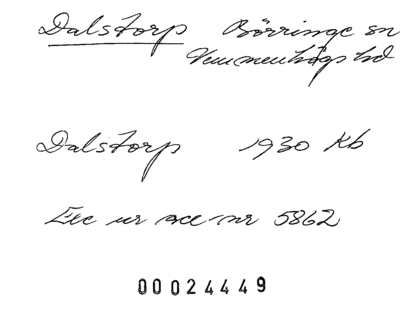 Dalstorp Börringe sn
Vemmenhögs hd
Dalstorp 1930 Kb
Exc ur acc nr 5862
00024449